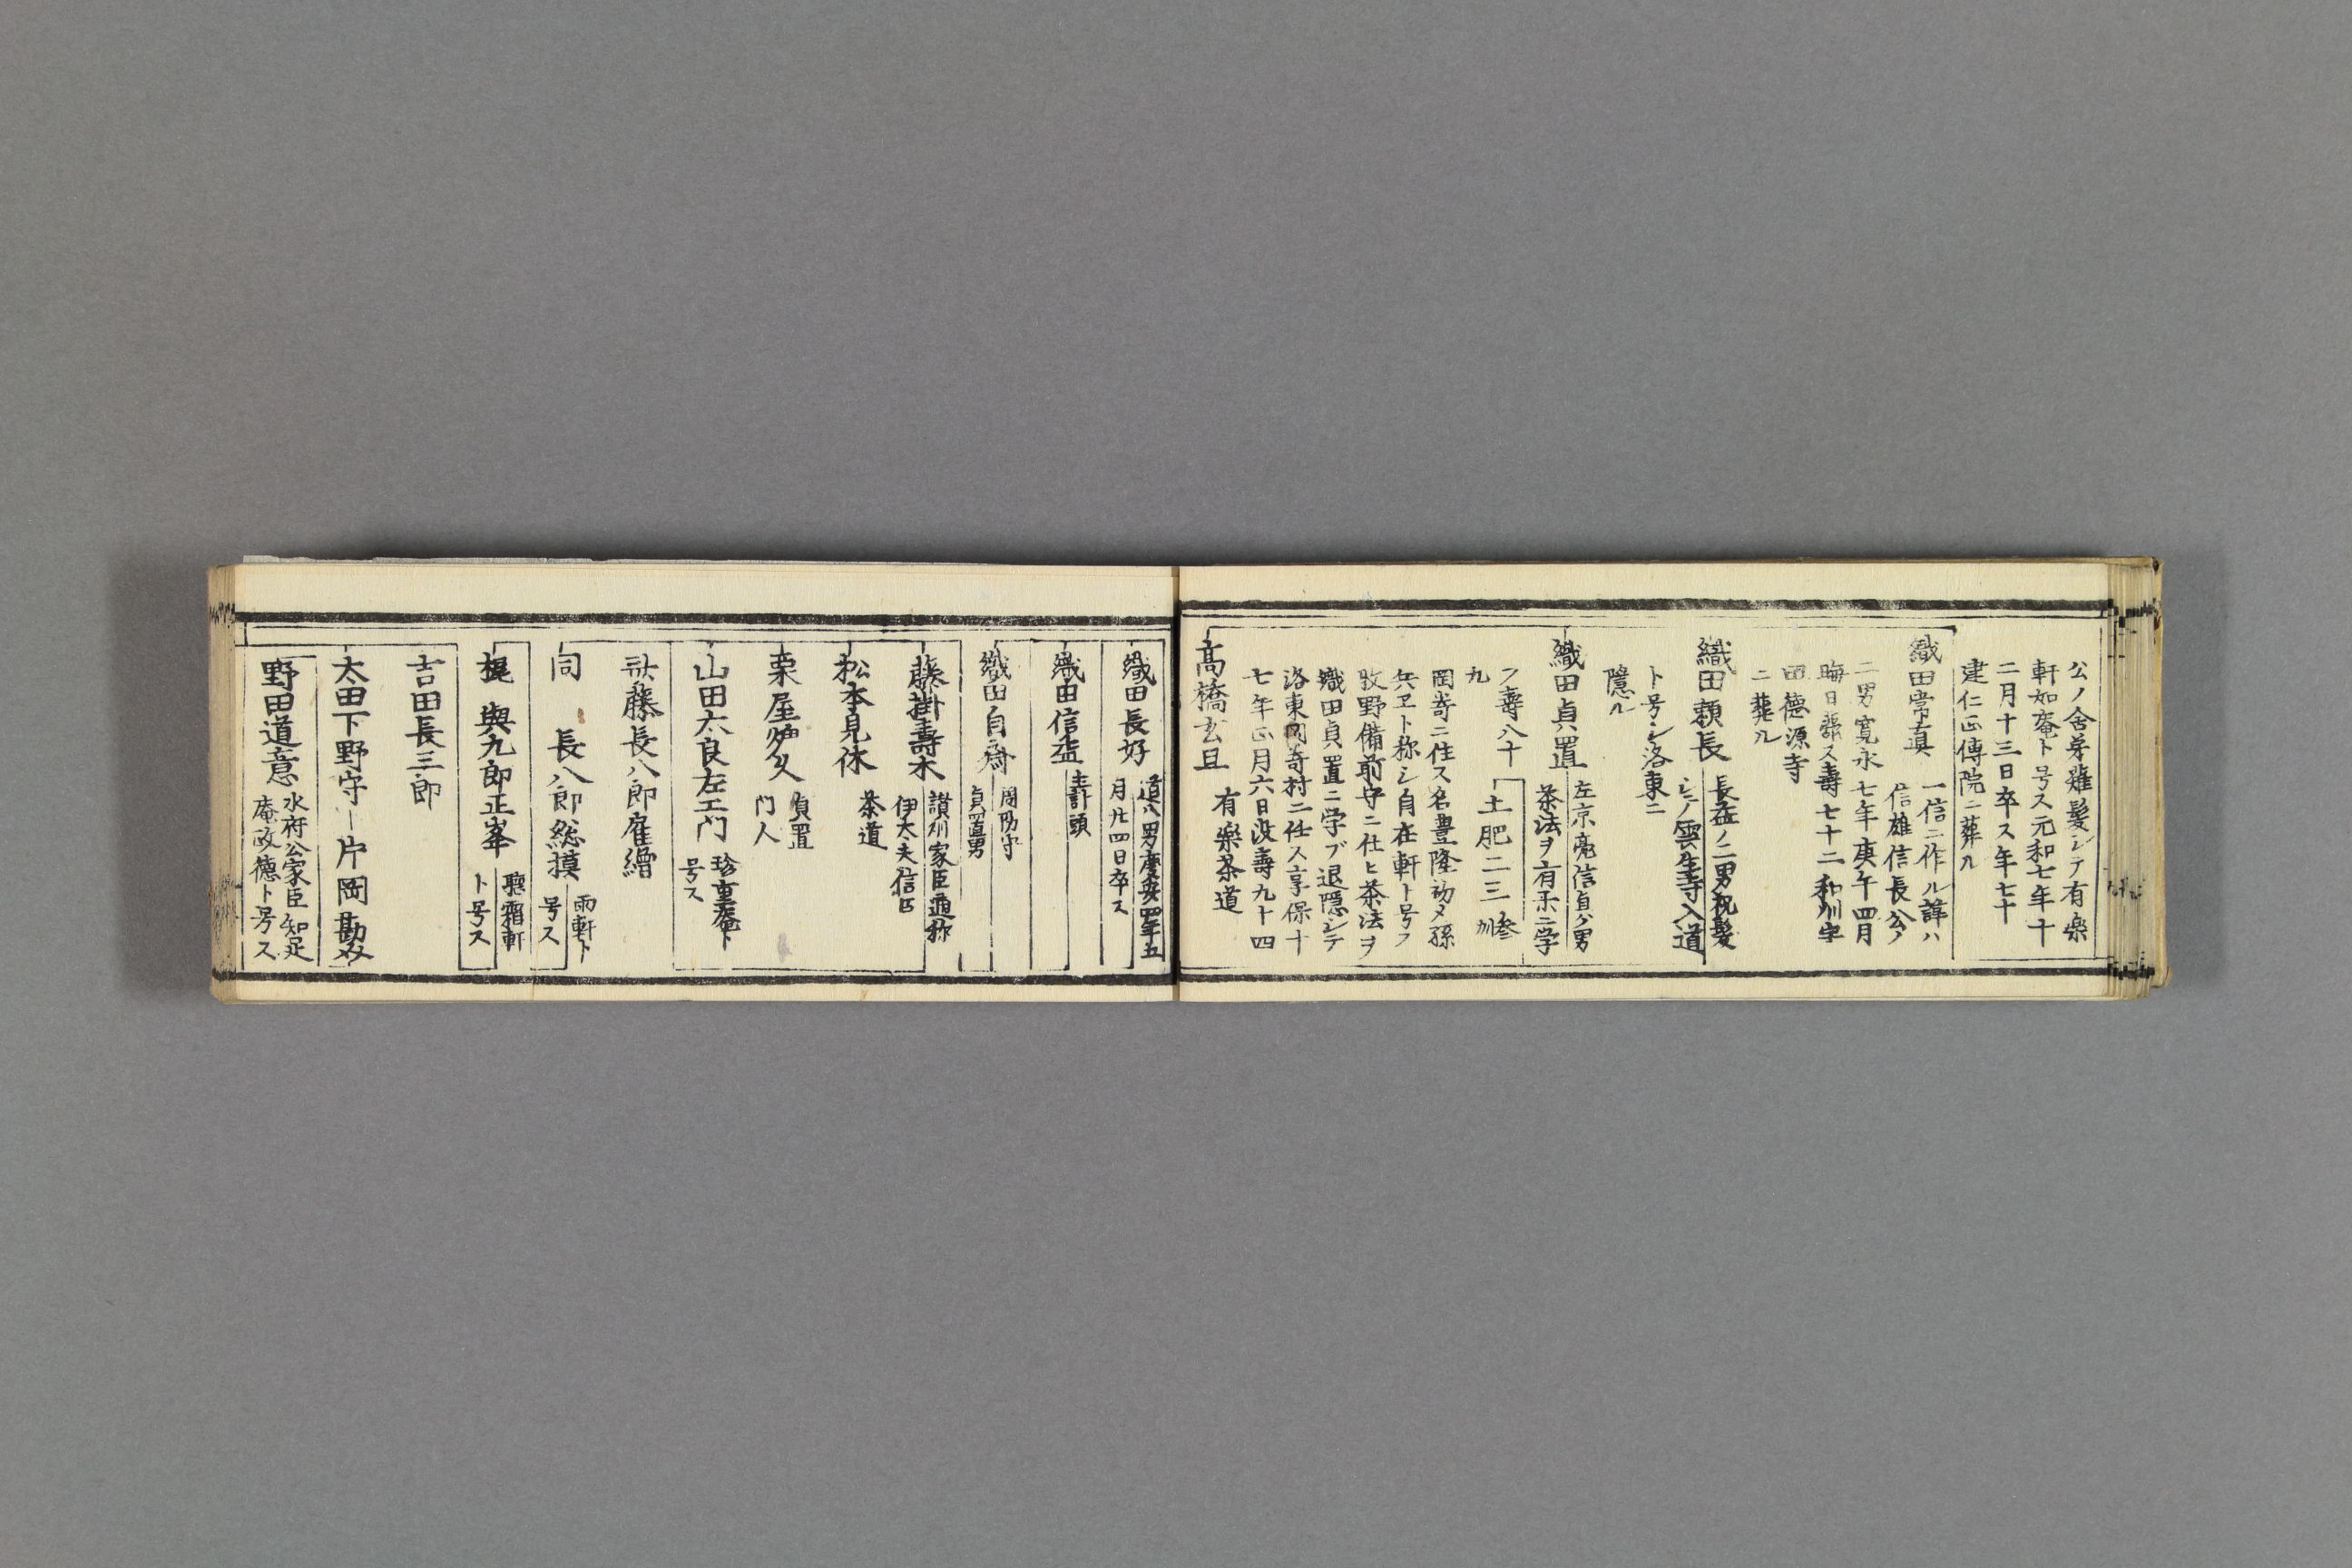 公ノ舍弟薙髮シテ有楽
軒如庵ト号ス元和七年十
二月十三日卒ス年七十
建仁正傳院ニ葬ル
織田常真
一信ニ作ル諱ハ
信雄信長公ノ
二男寛永七年庚午四月
晦日薨ス壽七十二和州宇
田德源寺
ニ葬ル
織田頼長
長益ノ二男祝髮
シテ雲生寺入道
ト号シ洛東ニ
隱ル
織田貞置
左京亮信貞ガ男
茶法ヲ有楽ニ学
フ壽八十
九
土肥二三
参
州
岡㟢ニ住ス名豊隆初メ孫
兵ヱト称シ自在軒ト号ス
牧野備前守ニ仕ヒ茶法ヲ
織田貞置ニ学ブ退隱シテ
洛東岡㟢村ニ住ス享保十
七年正月六日没壽九十四
髙橋玄旦
有楽茶道
織田長好
道八男慶安四年五
月廿四日卒ス
織田信盛
主計頭
織田自斎
周防守
貞置男
藤掛壽木
讃州家臣通称
伊太夫信
松本見休
茶道
栗屋多久
貞置
門人
山田太良左エ門
珍重庵ト
号ス
斎藤長八郎雇繒
同 長八郎総摸
雨軒ト
号ス
梶 與九郎正峯
聴霜軒
ト号ス
吉田長三郎
太田下野守―片岡勘
野田道意
水府公家臣知足
庵政德ト号ス